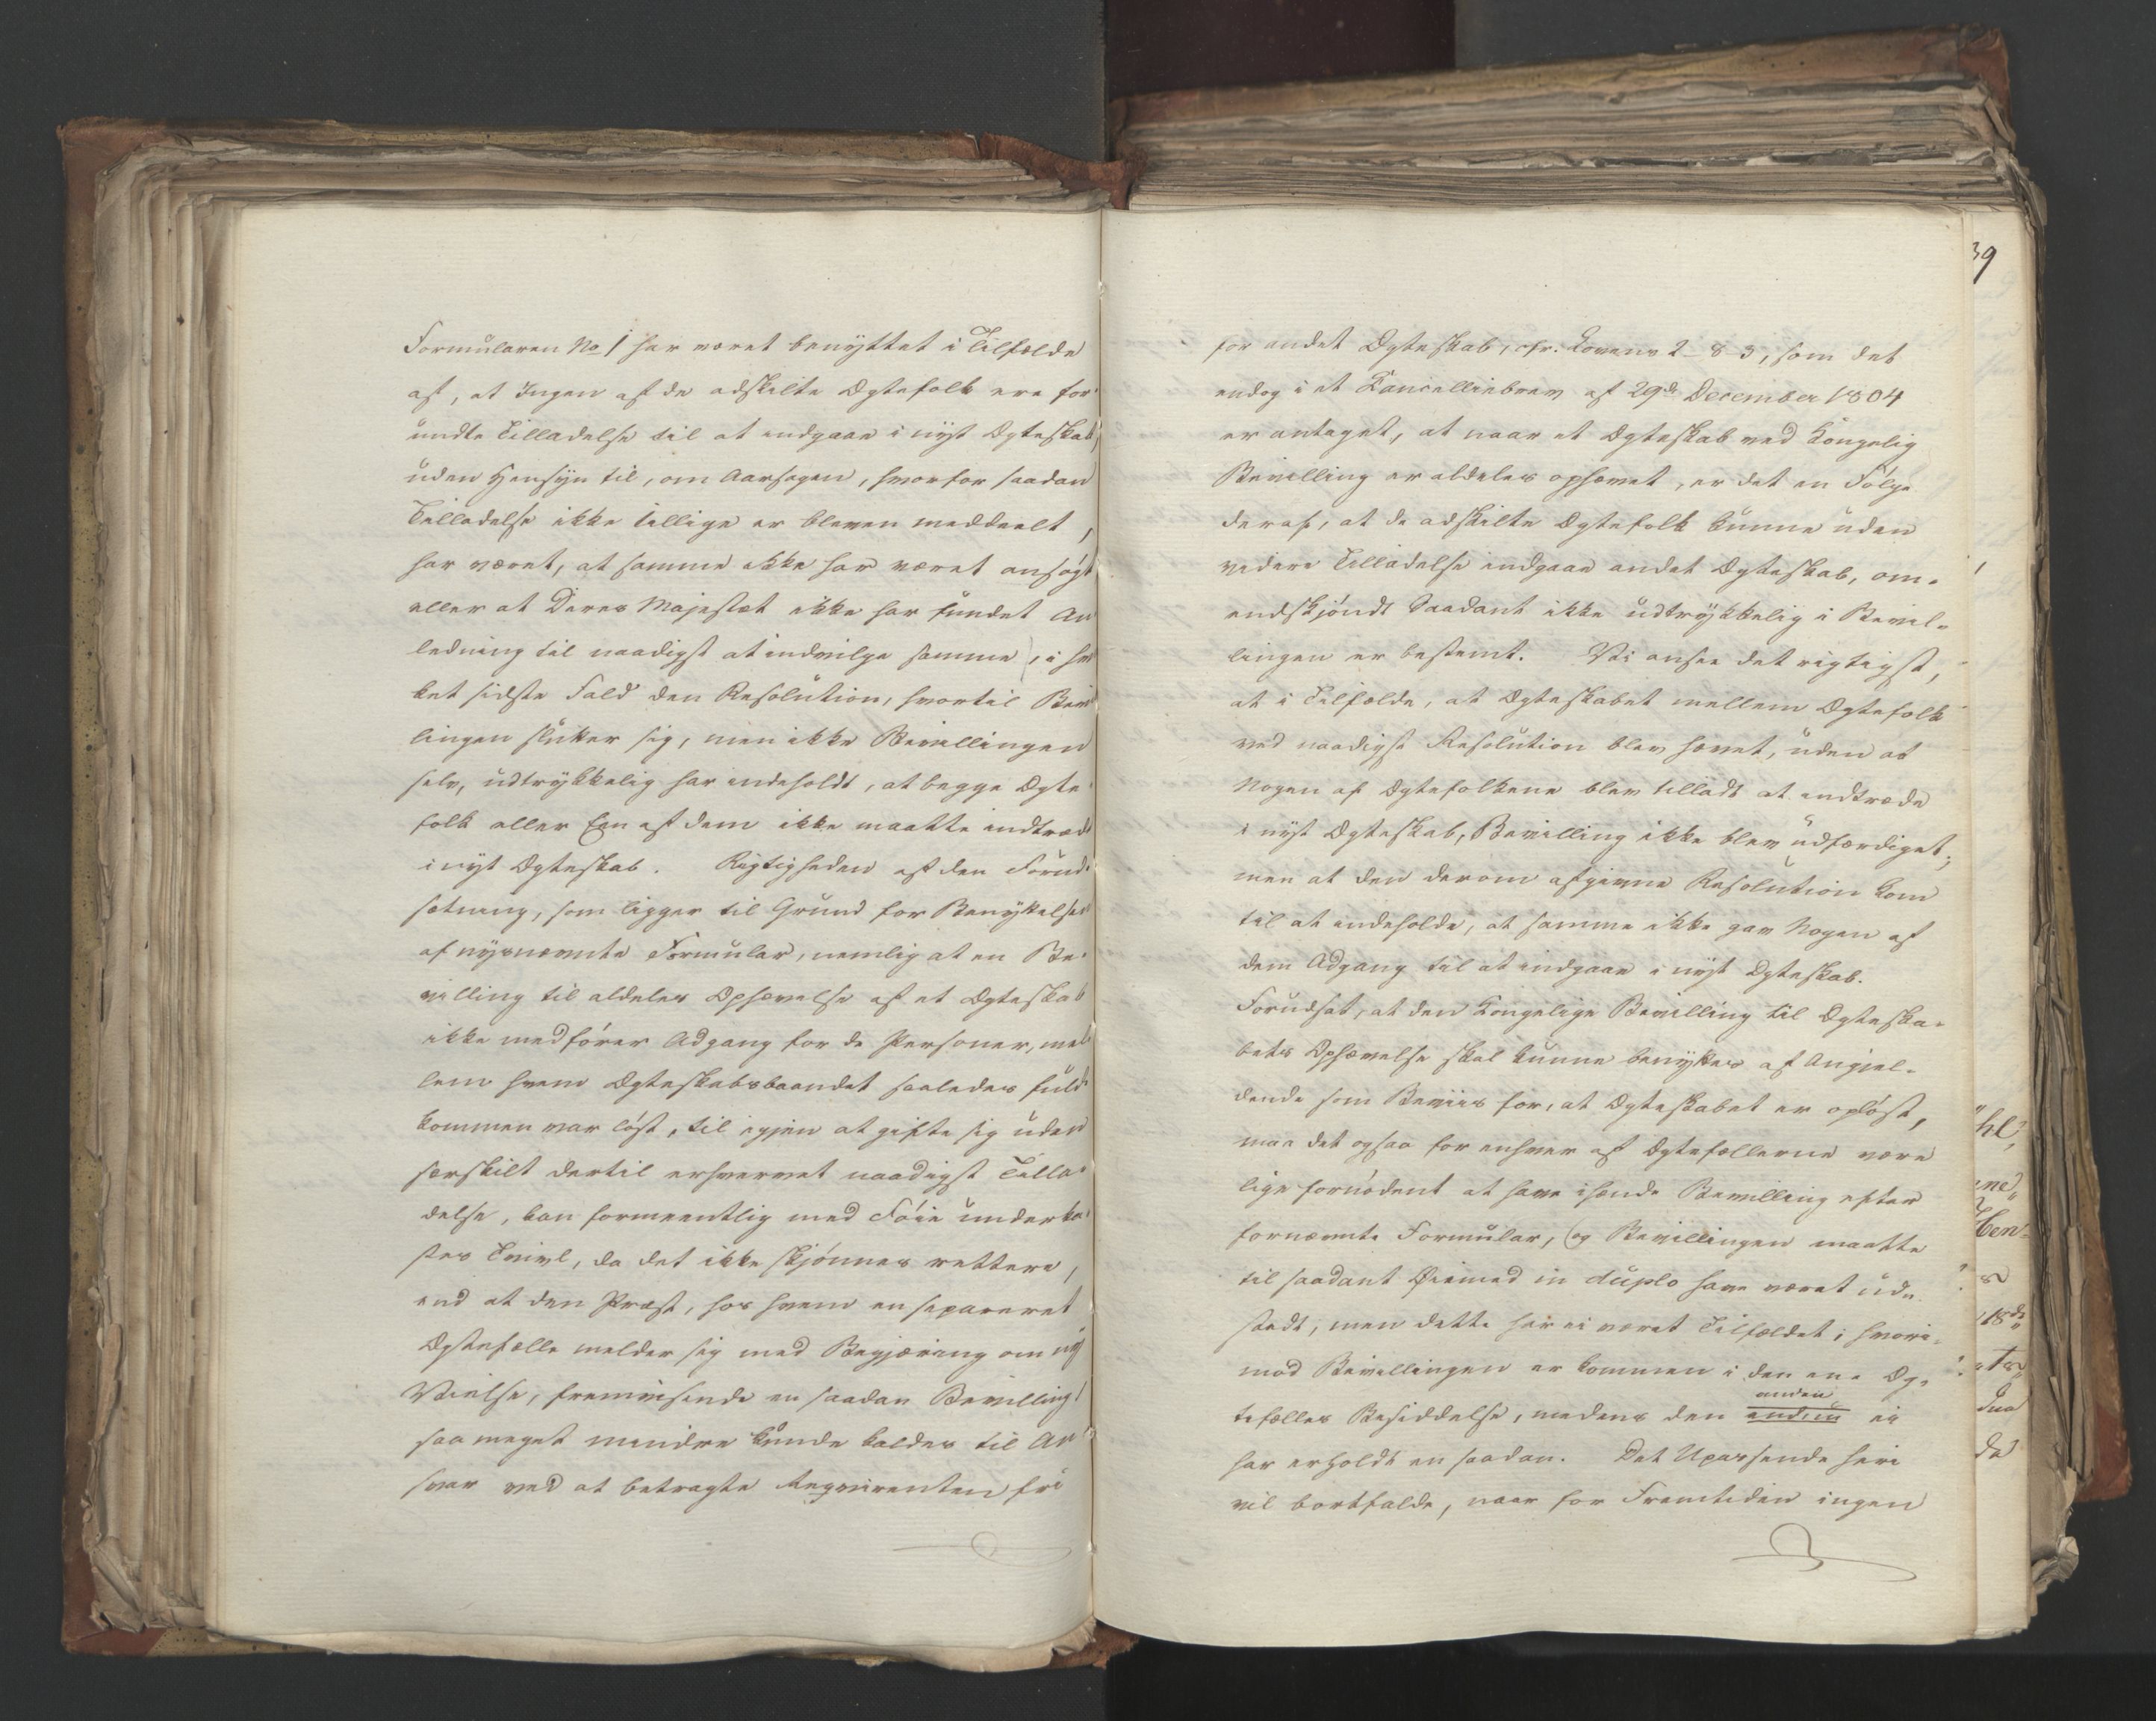 Formularen No 1 har været benyttet i Tilfælde
af, at Ingen af de adskilte Ægtefolk ere for¬
undte Tilladelse til at indgaae i nyt Ægteskab,
uden Hensyn til, om Aarsagen, hvorfor saadan
Tilladelse ikke tillige er bleven meddeelt,
har været, at samme ikke har været ansøgt
eller at Deres Majestæt ikke har fundet An
ledning til naadigst at indvilge samme, i hvil
ket sidste Fald den Resolution, hvortil Bevil
lingen slutter sig, men ikke Bevillingen
selv, udtrykkelig har indeholdt, at begge Ægte¬
folk eller Een af dem ikke maatte indtræde
i nyt Ægteskab. Rigtigheden af den Forud¬
sætning, som ligger til Grund for Benyttelsen
af nysnævnte Formular, nemlig at en Be¬
villing til aldeles Ophævelse af et Ægteskab
ikke medfører Adgang for de Personer, mel¬
lem hvem Ægteskabsbaandet saaledes fuld¬
kommen var løst, til igjen at gifte sig uden
særskilt dertil erhvervet naadigst Tilla¬
delse, kan formeentlig med Føie underka¬
stes Tvivl, da det ikke skjønnes rettere,
end at den Præst, hos hvem en separeret
Ægtefælle melder sig med Begjæring om ny
Vielse, fremvisende en saadan Bevilling,
saa meget mindre kunde kaldes til An
svar ved at betragte Reqvirenten fri
39
for andet Ægteskab, cfr. Lovens 2-8-3, som det
endog i et Cancelliebrev af 29de December 1804
er antaget, at naar et Ægteskab ved Kongelig
Bevilling er aldeles ophævet, er det en Følge
deraf, at de adskilte Ægtefolk kunne uden
videre Tilladelse indgaae andet Ægteskab, om¬
endskjøndt Saadant ikke udtrykkelig i Bevil¬
lingen er bestemt. Vi ansee det rigtigst,
at i Tilfælde, at Ægteskabet mellem Ægtefolk
ved naadigst Resolution blev hævet, uden at
Nogen af Ægtefolkene blev tilladt at indtræde
i nyt Ægteskab, Bevilling ikke blev udfærdiget,
men at den derom afgivne Resolution kom
til at indeholde, at samme ikke gav Nogen af
dem Adgang til at indgaae i nyt Ægteskab.
Forudsat, at den Kongelige Bevilling til Ægteska¬
bets Ophævelse skal kunne benyttes af Angjel¬
dende som Beviis for, at Ægteskabet er opløst,
maa det ogsaa for enhver af Ægtefællerne være
lige fornødent at have ihænde Bevilling efter
fornævnte Formular, (og Bevillingen maatte
til saadant Øiemed in duplo have været ud¬
stedt, men dette har ei været Tilfældet, hvori¬
mod Bevillingen er kommen i den ene Æg¬
tefælles Besiddelse, medens den anden ei
har erholdt en saadan. Det Upassende heri
vil bortfalde, naar for Fremtiden ingen